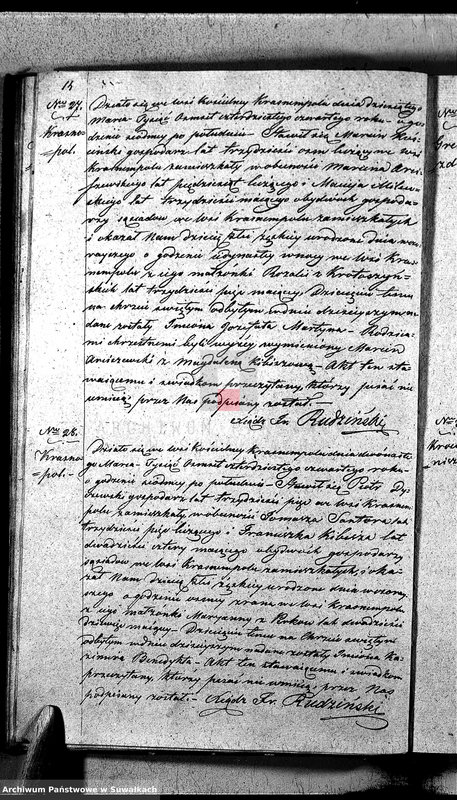 14
Nro 27.
Krasno-
=pol.
Działo się we wsi kościelny Krasnympolu dnia dziesiątego
Marca Tysiąc Ośmset czterdziestego czwartego roku o go-
dzinie siódmy po południu – Stawił się Marcin
gospodarz lat trzydzieści ośm liczący we wsi
Krasnympolu zamieszkały w obecności Marcina Ani-
szewskiego lat pięćdziesiąt liczącego i Macieja
lat trzydzieści mającego obydwóch gospoda-
rzy sąsiadów we wsi Krasnympolu zamieszkałych
i okazał Nam dziecię płci żeńskiej urodzone dnia wczo-
rayszego o godzinie jedynastej w nocy we wsi Kra-
snympolu z jego małżonki Rozalii z
lat trzydzieści pięć mający. Dziecięciu temu
na chrzcie świętym odbytym w dniu dzisiejszym na-
dane zostały Imiona Józefata Martyna – Rodzica-
mi chrzestnemi byli wyżej wymieniony Marcin
Aniszewski z Magdaleną – Akt ten sta-
wającemu i świadkom przeczytany, którzy pisać nie
umieją, przez Nas podpisany został.
Xiądz Fr. Rudziński
Nro 28.
Krasno-
=pol.
Działo się we wsi Kościelny Krasnympolu dnia dwónaste-
go Marca Tysiąc Ośmset czterdziestego czwartego roku
o godzinie siódmy po południu – Stawił się Piotr
gospodarz lat trzydzieści pięć we wsi Krasnym-
polu zamieszkały, w obecności Tomasza lat
trzydzieści pięć liczącego i Franciszka lat
dwadzieścia cztery mającego obydwóch gospodarzy
sąsiadów we wsi Krasnympolu zamieszkałych, i oka-
zał Nam dziecię płci żeńskiej urodzone dnia wczoray-
szego o godzinie ósmy z rana we wsi Krasnympolu
z jego małżonki Maryanny z lat dwadzieścia
dziewięć mający – Dziecięciu temu na Chrzcie świętym
odbytym w dniu dzisiejszym nadane zostały Imiona Ka-
zimira Benedykta – Akt ten stawającemu i świadkom
przeczytany, którzy pisać nie umieją, przez Nas
podpisany został. – Xiądz Fr. Rudziński
Archiwum Państwowe w Suwałkach